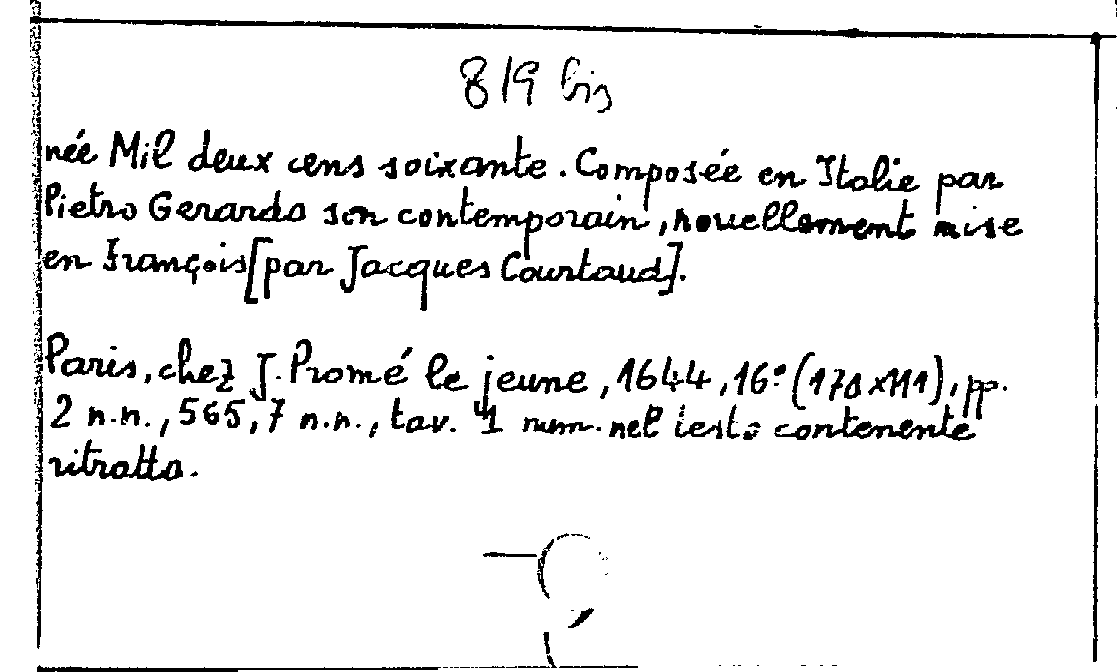 819 bis
née Mil deux cens soixante. Composée en Italie par
Pietro Gerardo son contemporain, nouellement mise
en françois [par Jacques Courtaud].
Paris, chez J. Promé le jeune, 1644, 16.° (170x111), pp.
2 n.n., 565, 7 n.n., tav. 1 num. nel testo contenente
ritratto.